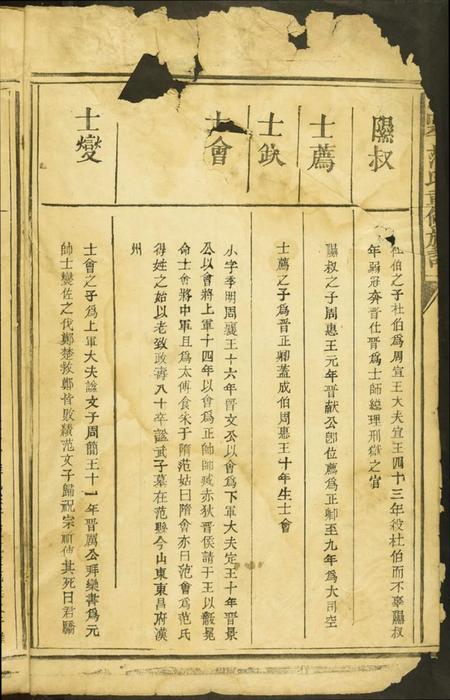 隰叔
杜伯之子杜伯為周宣王大夫宣王四十三年殺杜伯而不辜隰叔
年弱冠奔晉仕晉為士師總理刑獄之官
士蒍
隰叔之子周惠王元年晉献公卽位蒍為正卿至九年為大司空
士缺
士蒍之子為晉正卿蓋成伯周惠王十年生士會
士會
小字季明周襄王十六年晉文公以會為下軍大夫定王十年晉景
公以會將上軍十四年以會為正帥師滅赤狄晉侯請于王以黻冕
命士會將中軍且為太傅食采于隋范姑曰隋會亦曰范會為范氏
得姓之始以老致政壽八十卒諡武子墓在范縣今山東東昌府濮
州
士燮
士會之子為上軍大夫諡文子周簡王十一年晉厲公拜欒書為元
帥士燮佐之伐鄭楚救鄭皆敗績范文子歸祝宗祈使其死曰君驕